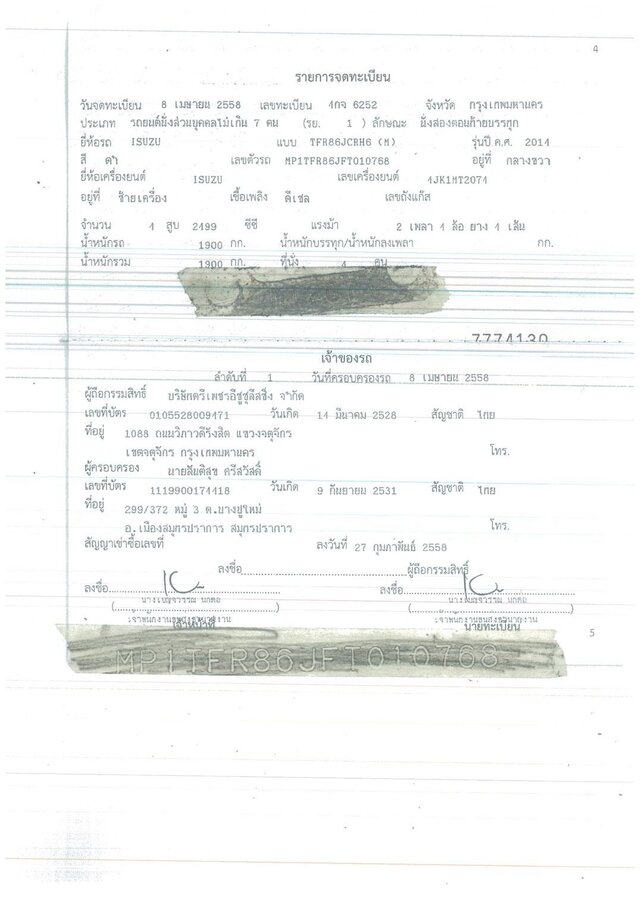 4
รายการจดทะเบียน
วันจดทะเบียน 8 เมษายน 2558 เลขทะเบียน 4กจ 6252 จังหวัด กรุงเทพมหานคร
ประเภท รถยนต์นั่งส่วนบุคคลไม่เกิน 7 คน (รย. 1 ) ลักษณะ นั่งสองตอนท้ายบรรทุก
ยี่ห้อรถ ISUZU แบบ TFR86JCRH6 (M) รุ่นปี ค.ศ. 2014
สี ดำ เลขตัวรถ MP1TFR86JFT010768 อยู่ที่ กลางขวา
ยี่ห้อเครื่องยนต์ ISUZU เลขเครื่องยนต์ 4JK1MT2074
อยู่ที่ ซ้ายเครื่อง เชื้อเพลิง ดีเซล เลขถังแก๊ส
จำนวน 4 สูบ 2499 ซีซี แรงม้า 2 เพลา 4 ล้อ ยาง 4 เส้น
น้ำหนักรถ 1900 กก. น้ำหนักบรรทุก/น้ำหนักลงเพลา กก.
น้ำหนักรวม 1900 กก. ที่นั่ง 4 คน
7774130
เจ้าของรถ
ลำดับที่ 1 วันที่ครอบครองรถ 8 เมษายน 2558
ผู้ถือกรรมสิทธิ์ บริษัทตรีเพชรอีซูซุลีสซิ่ง จำกัด
เลขที่บัตร 0105528009471 วันเกิด 14 มีนาคม 2528 สัญชาติ ไทย
ที่อยู่ 1088 ถนนวิภาวดีรังสิต แขวงจตุจักร
เขตจตุจักร กรุงเทพมหานคร โทร.
ผู้ครอบครอง นายสันติสุข ศรีสวัสดิ์
เลขที่บัตร 1119900174418 วันเกิด 9 กันยายน 2531 สัญชาติ ไทย
ที่อยู่ 299/372 หมู่ 3 ต.บางปูใหม่
อ.เมืองสมุทรปราการ สมุทรปราการ โทร.
สัญญาเช่าซื้อเลขที่ ลงวันที่ 27 กุมภาพันธ์ 2558
ลงชื่อ ผู้ถือกรรมสิทธิ์
ลงชื่อ ลงชื่อ
เจ้าพนักงานขนส่งชำนาญงาน เจ้าพนักงานขนส่งชำนาญงาน
เจ้าหน้าที่ นายทะเบียน
5
MP1TFR86JFT010768